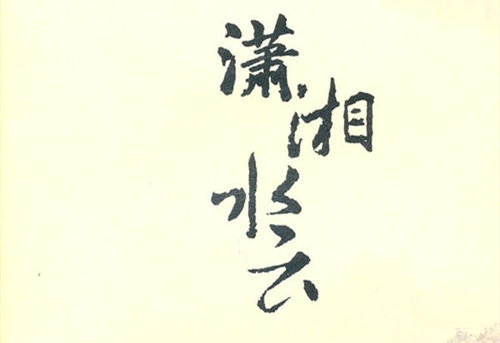 潇湘水云